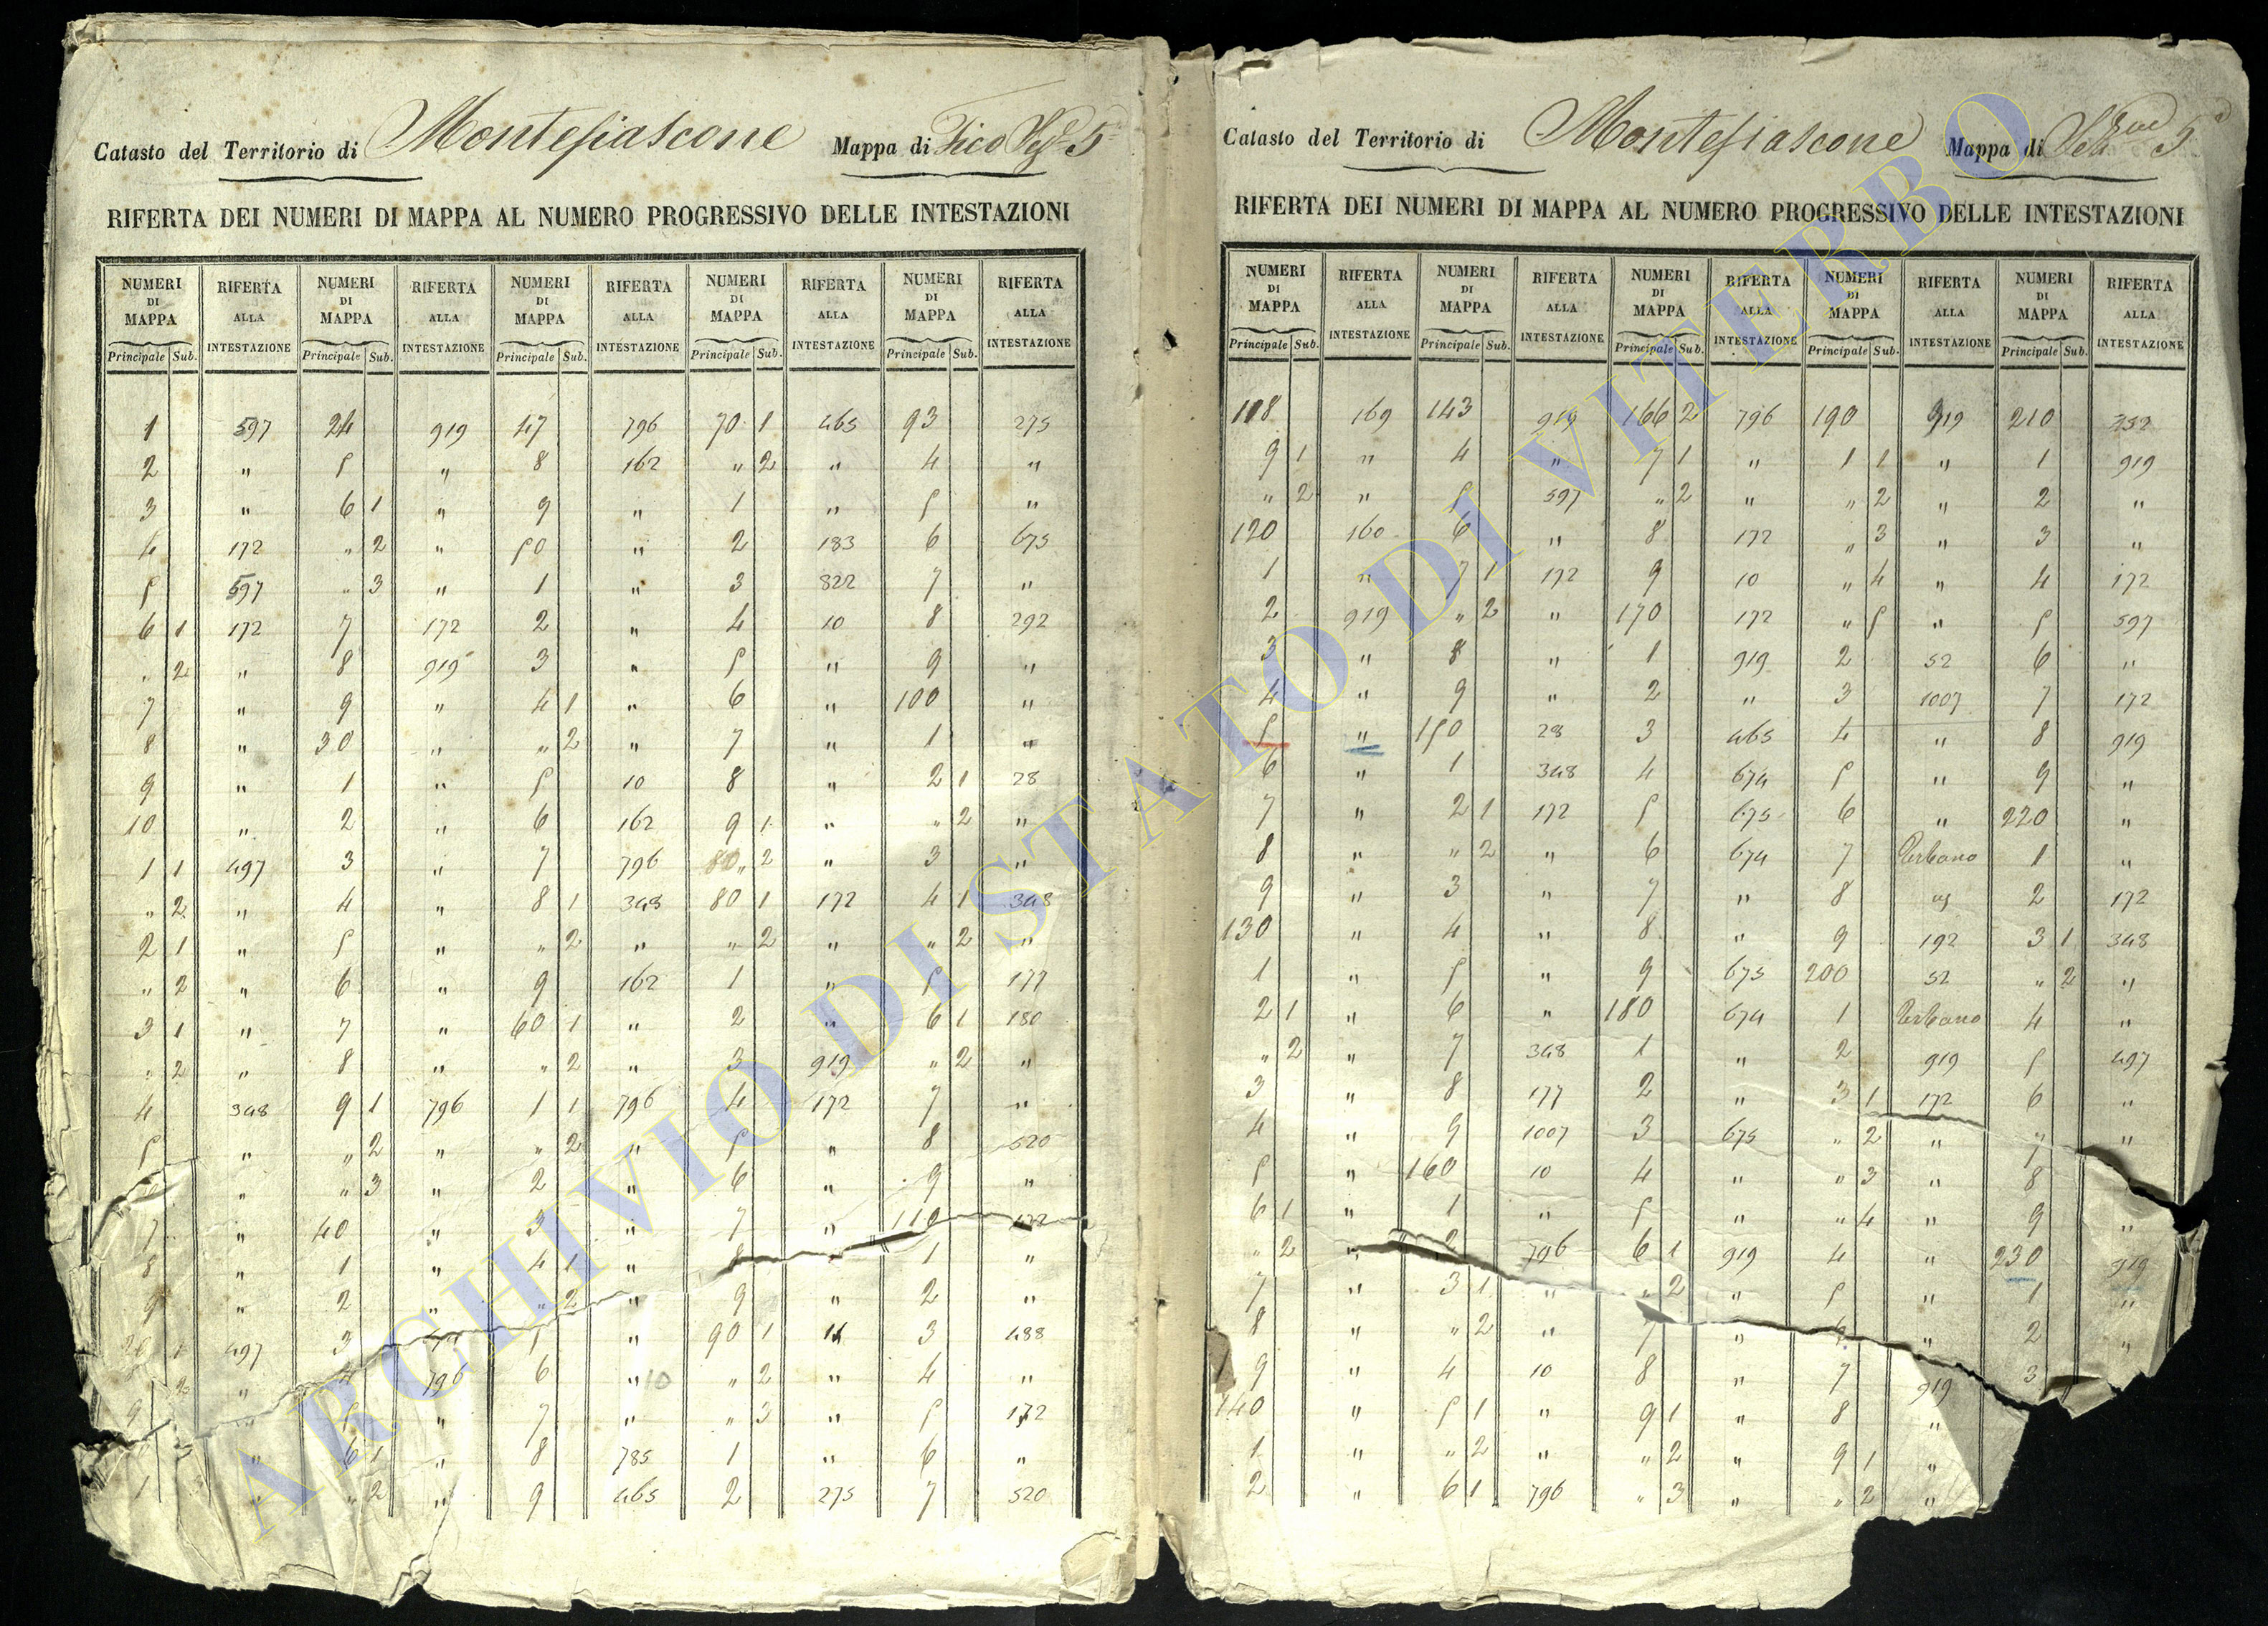 Catasto del Territorio di Montefiascone Mappa di Fico Sez.e 5ª
RIFERTA DEI NUMERI DI MAPPA AL NUMERO PROGRESSIVO DELLE INTESTAZIONI
NUMERI DI MAPPA RIFERTA ALLA INTESTAZIONE NUMERI DI MAPPA RIFERTA ALLA INTESTAZIONE NUMERI DI MAPPA RIFERTA ALLA INTESTAZIONE NUMERI DI MAPPA RIFERTA ALLA INTESTAZIONE NUMERI DI MAPPA RIFERTA ALLA INTESTAZIONE
Principale Sub. Principale Sub. Principale Sub. Principale Sub. Principale Sub.
1 597 24 919 47 796 70 1 465 93 275
2 " 5 " 8 162 " 2 " 4 "
3 " 6 1 " 9 " 1 " 5 "
4 172 " 2 " 50 " 2 183 6 675
5 597 " 3 " 1 " 3 822 7 "
6 1 172 7 172 2 " 4 10 8 292
" 2 " 8 919 3 " 5 " 9 "
7 " 9 " 4 1 " 6 " 100 "
8 " 30 " " 2 " 7 " 1 "
9 " 1 " 5 10 8 " 2 1 28
10 " 2 " 6 162 9 1 " " 2 "
1 1 497 3 " 7 796 80 " 2 " 3 "
" 2 " 4 " 8 1 348 80 1 172 4 1 348
2 1 " 5 " " 2 " " 2 " " 2 "
" 2 " 6 " 9 162 1 " 5 177
3 1 " 7 " 60 1 " 2 " 6 1 180
" 2 " 8 " " 2 " 3 919 " 2 "
4 348 9 1 796 1 1 796 4 172 7 "
5 " " 2 " " 2 " 5 " 8 520
" " 3 " 2 " 6 " 9 "
7 " 40 " 3 " 7 " 110 172
8 " 1 " 4 1 " 8 " 1 "
9 " 2 " " 2 " 9 " 2 "
20 1 497 3 5 " 90 1 14 3 488
2 " 4 796 6 " 10 " 2 " 4 "
" 5 " 7 " " 3 " 5 172
" 6 1 " 8 785 1 " 6 "
1 " " 2 " 9 465 2 275 7 520
Catasto del Territorio di Montefiascone Mappa di Sezione 5ª
RIFERTA DEI NUMERI DI MAPPA AL NUMERO PROGRESSIVO DELLE INTESTAZIONI
NUMERI DI MAPPA RIFERTA ALLA INTESTAZIONE NUMERI DI MAPPA RIFERTA ALLA INTESTAZIONE NUMERI DI MAPPA RIFERTA ALLA INTESTAZIONE NUMERI DI MAPPA RIFERTA ALLA INTESTAZIONE NUMERI DI MAPPA RIFERTA ALLA INTESTAZIONE
Principale Sub. Principale Sub. Principale Sub. Principale Sub. Principale Sub.
118 169 143 919 166 2 796 190 919 210 352
9 1 " 4 " 7 1 " 1 1 " 1 919
" 2 " 5 597 " 2 " " 2 " 2 "
120 160 6 " 8 172 " 3 " 3 "
1 " 7 1 172 9 10 " 4 " 4 172
2 919 " 2 " 170 172 " 5 " 5 597
3 " 8 " 1 919 2 52 6 "
4 " 9 " 2 " 3 1007 7 172
5 " 150 28 3 465 4 " 8 919
6 " 1 348 4 674 5 " 9 "
7 " 2 1 172 5 675 6 " 220 "
8 " " 2 " 6 674 7 Urbano 1 "
9 " 3 " 7 " 8 2 172
130 " 4 " 8 " 9 192 3 1 348
1 " 5 " 9 675 200 52 " 2 "
2 1 " 6 " 180 674 1 Urbano 4 "
" 2 " 7 348 1 " 2 919 5 497
3 " 8 177 2 " 3 1 172 6 "
4 " 9 1007 3 675 " 2 " 7 "
5 " 160 10 4 " " 3 " 8
6 1 " 1 " 5 " " 4 " 9 "
" 2 " 2 796 6 1 919 4 " 230 919
7 " 3 1 " " 2 " 5 " 1 "
8 " " 2 " 7 " 6 " 2 "
9 " 4 10 8 " 7 919 3
140 " 5 1 " 9 1 " 8 "
1 " " 2 " " 2 " 9 1 "
2 " 6 1 796 " 3 " " 2 "
ARCHIVIO DI STATO DI VITERBO